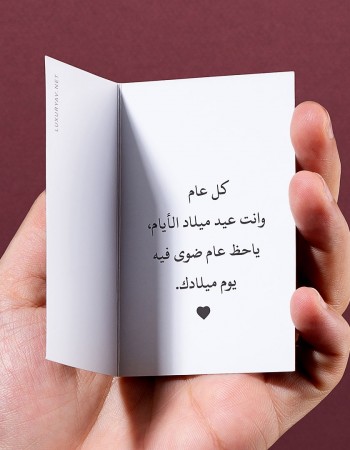 كل عام
وانت عيد ميلاد الأيام،
ياحظ عام ضوى فيه
يوم ميلادك.